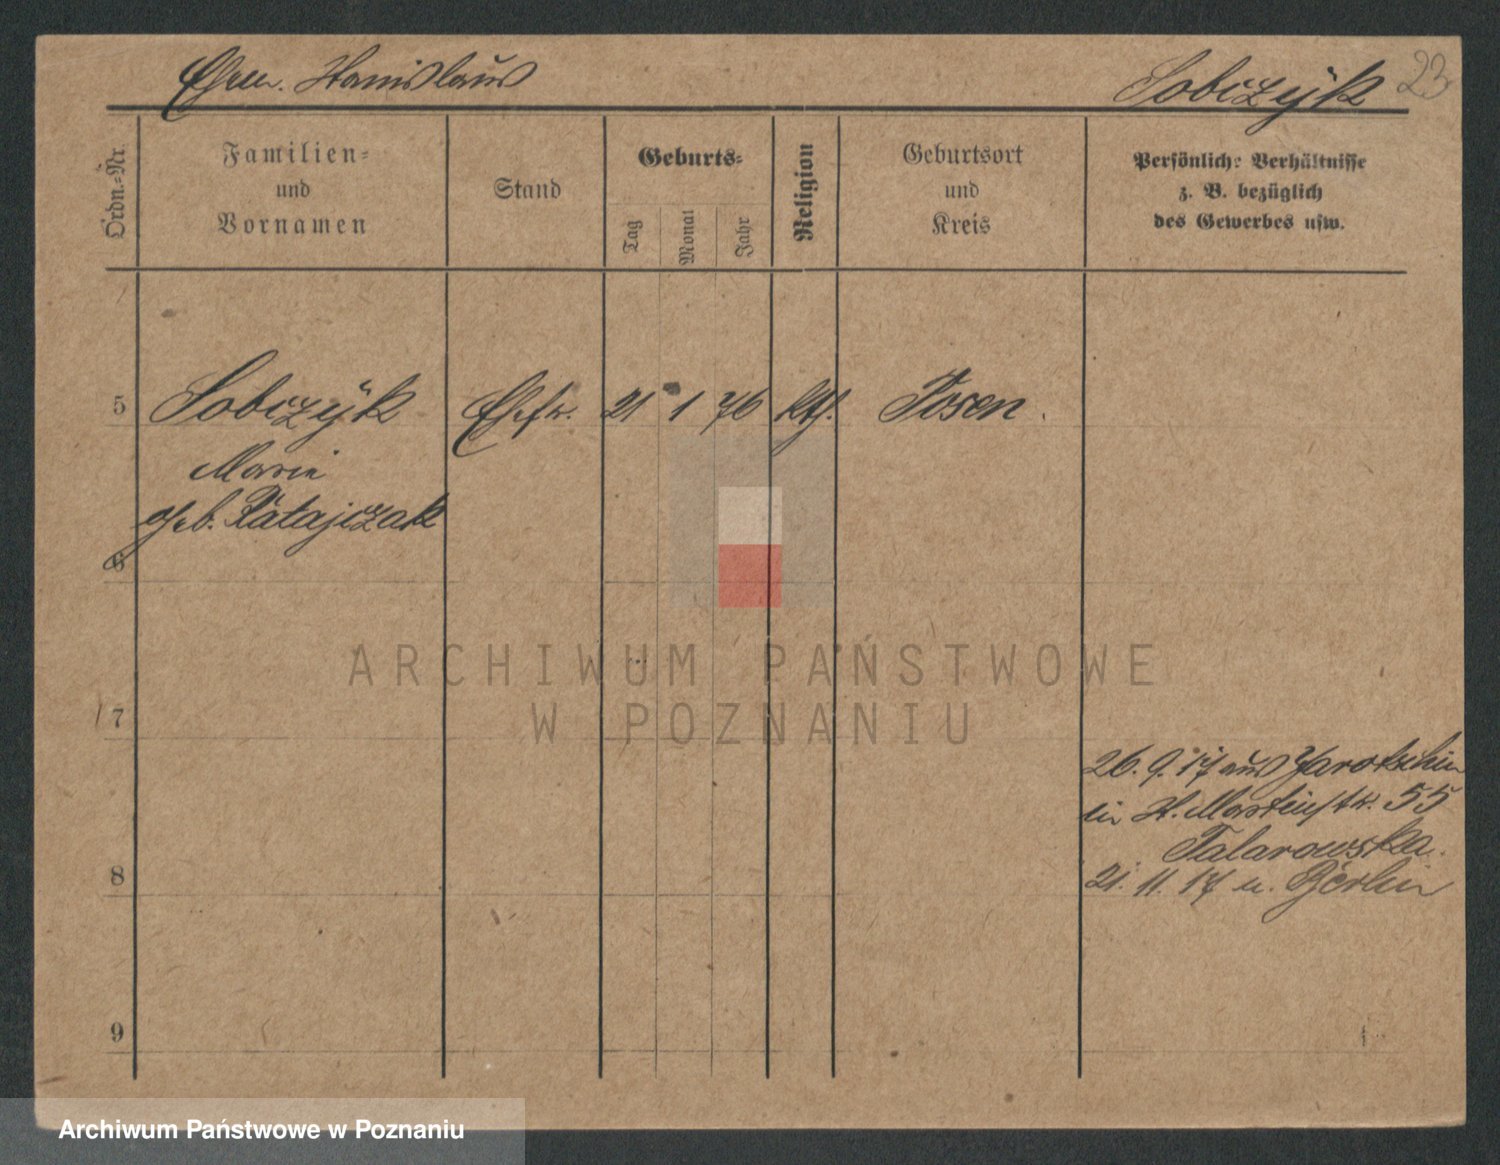 Ehem. Stanislaus
Sobczÿk 23
Ordn.=Nr.
Familien=
und
Vornamen
Stand
Geburts=
Tag
Monat
Jahr
Religion
Geburtsort
und
Kreis
Persönliche Verhältnisse
z. B. bezüglich
des Gewerbes usw.
5 Sobczÿk Ehefr. 21 1 76 kth. Posen.
Marie
geb. Ratajczak
6
7
26. 9. 17 aus Jarotschin
in St. Martinstr. 55
Talarowska.
8 21. 11. 17 n. Berlin
9
ARCHIWUM PAŃSTWOWE
W POZNANIU
Archiwum Państwowe w Poznaniu